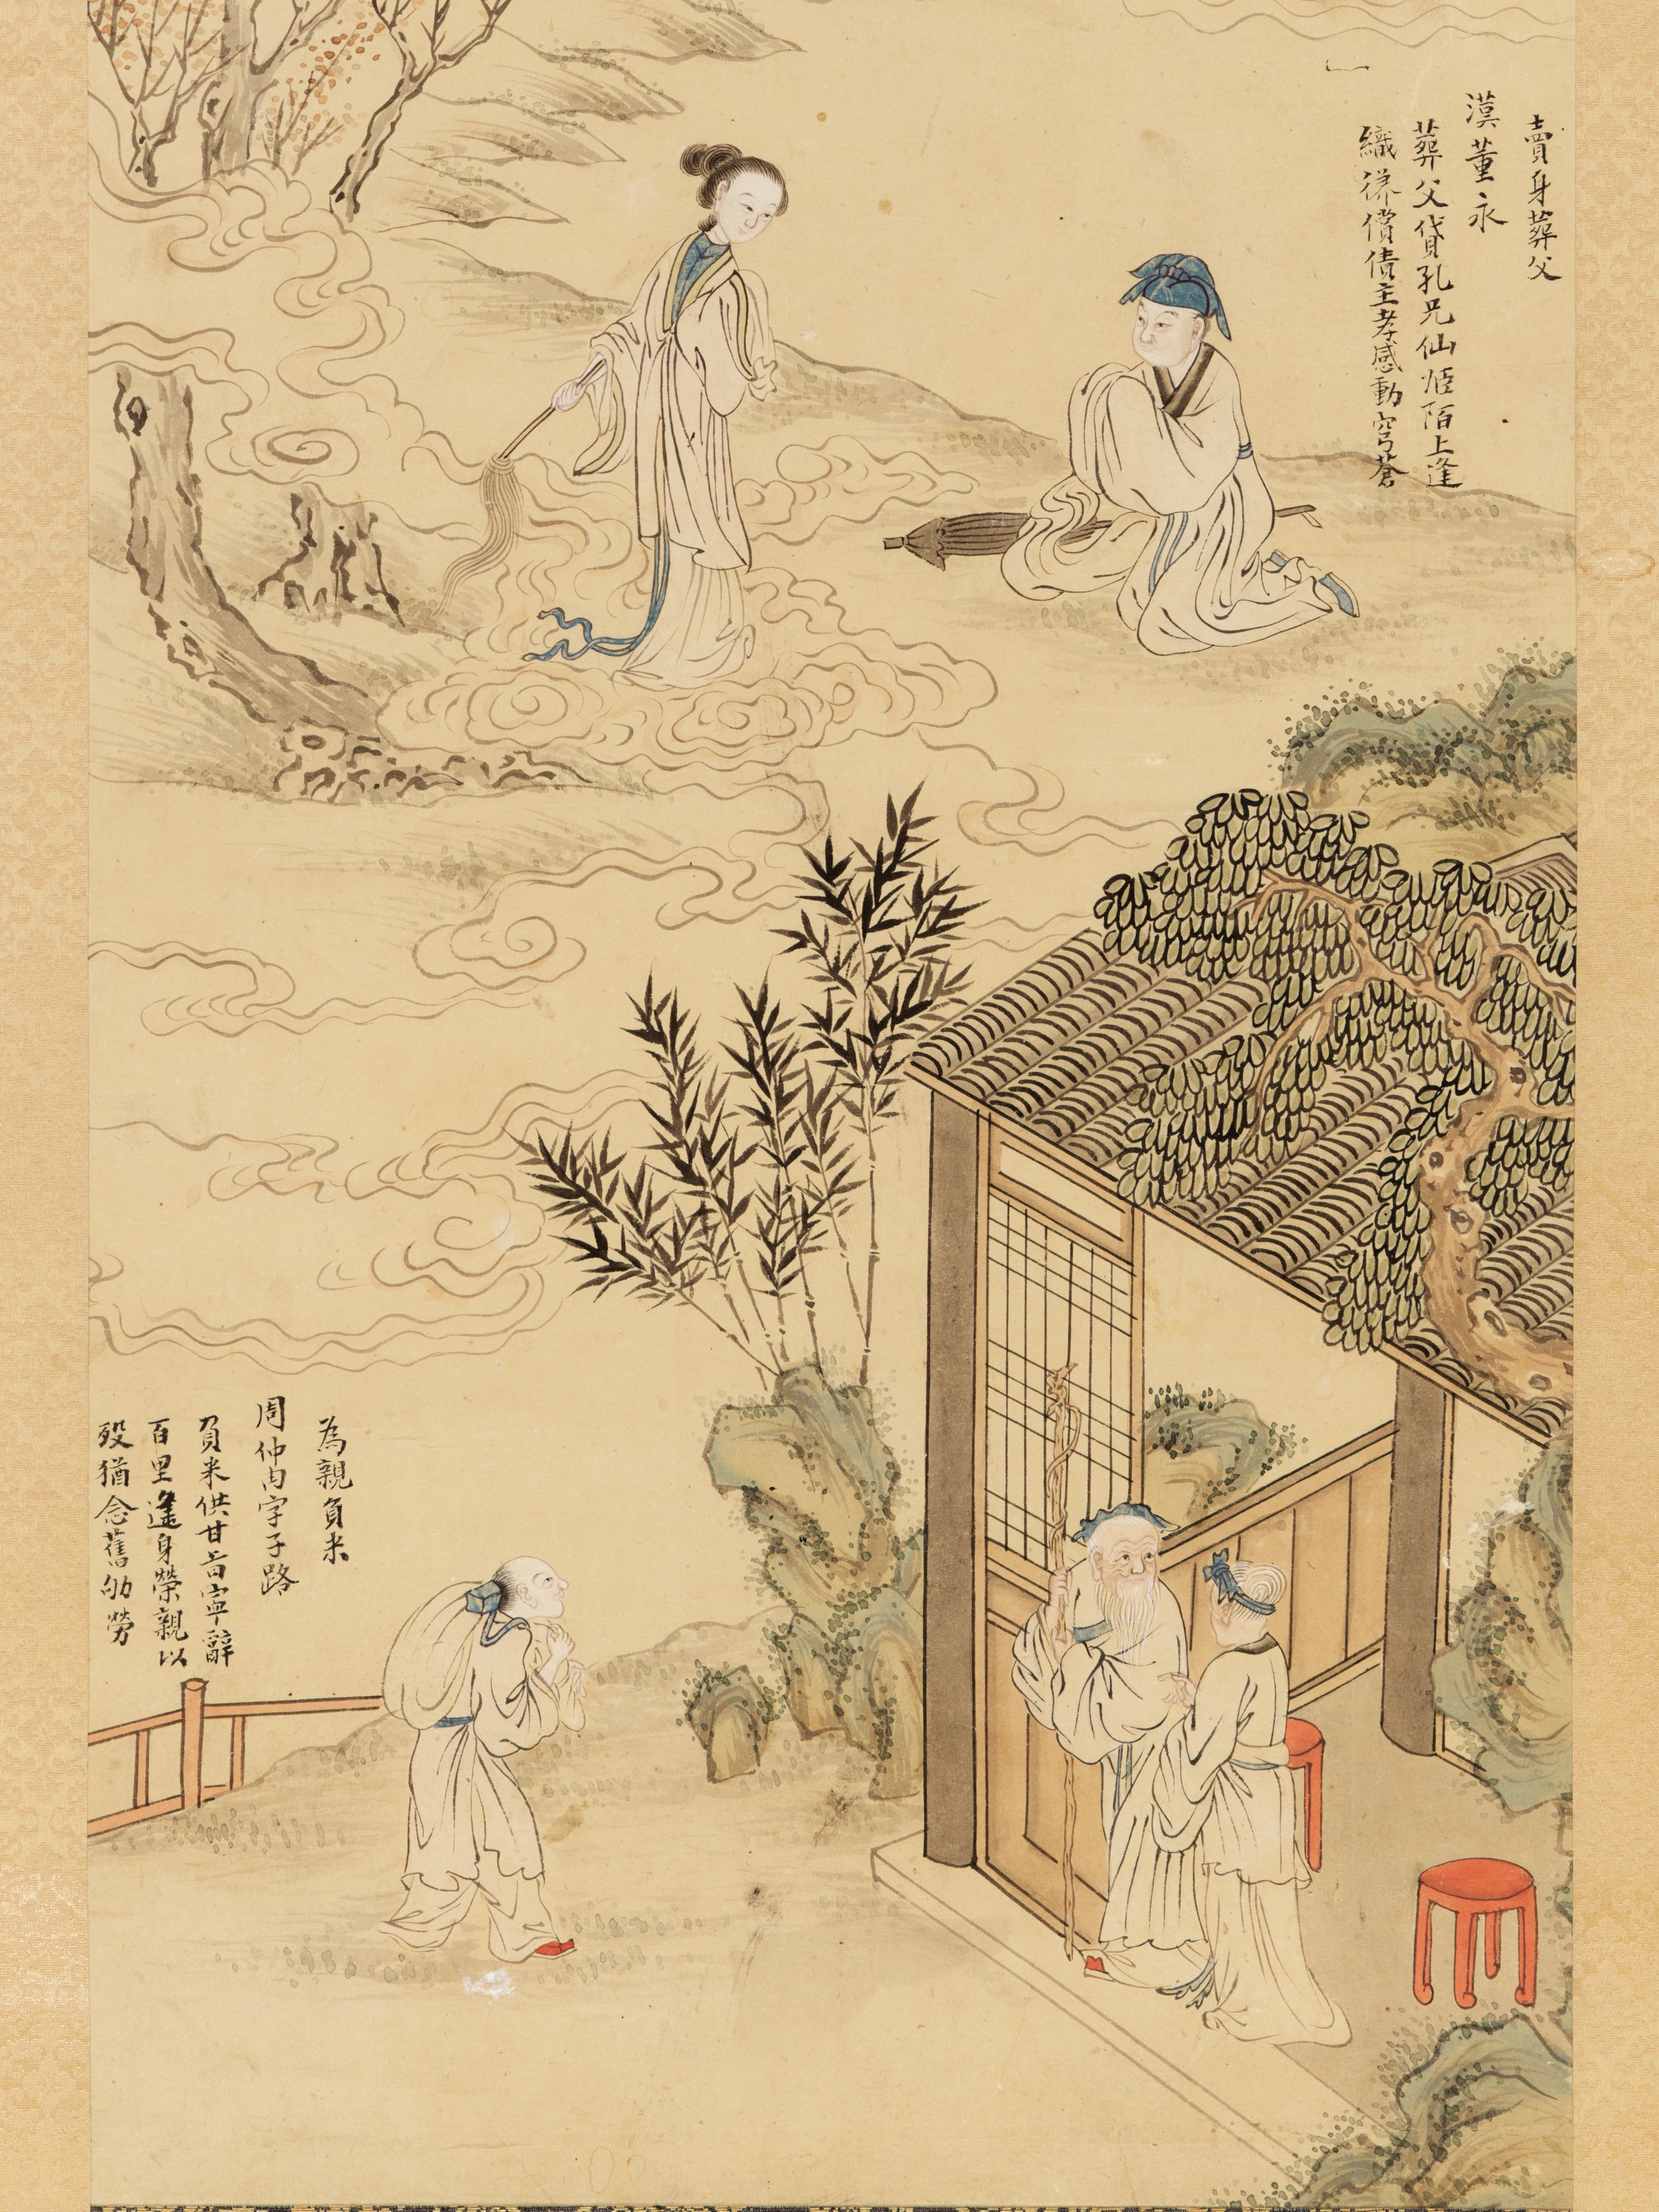 賣身葬父
漢董永
葬父貸孔兄仙姬陌上逢
織縑償債主孝感動穹蒼
為親負米
周仲由字子路
負米供甘旨寧辭
百里遙身榮親以
歿猶念舊劬勞